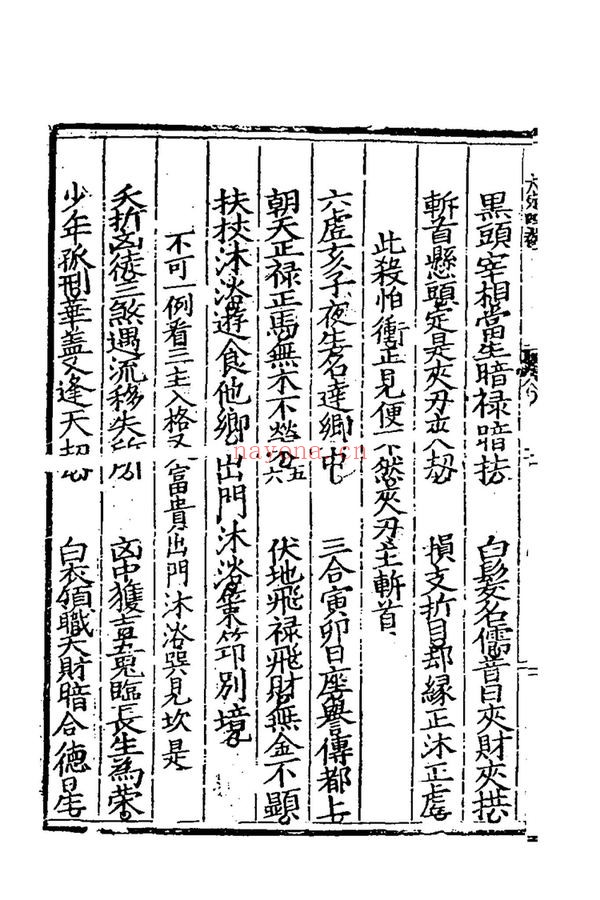 黑頭宰相當生暗祿暗 白髮名儒昔日夾財夾拱
斬首懸頭定是夾刃 劫 損支折目却緣正沐正虛
此殺怕衝正見便不然夾刃主斬首
六虛亥子夜生名達卿中 三合寅卯日座譽傳都上
朝天正祿正馬無木不 五六 伏地飛祿飛財無金不顯
扶杖沐浴遊食他鄉 出門沐浴 別境
不可一例看三主入格又 富貴出門沐浴巽見坎是
夭折凶徒三煞遇流移失所 凶中獲吉五鬼臨長生為榮
少年孤刑華蓋又逢天劫 白衣領職天財暗合德星
nayona.cn